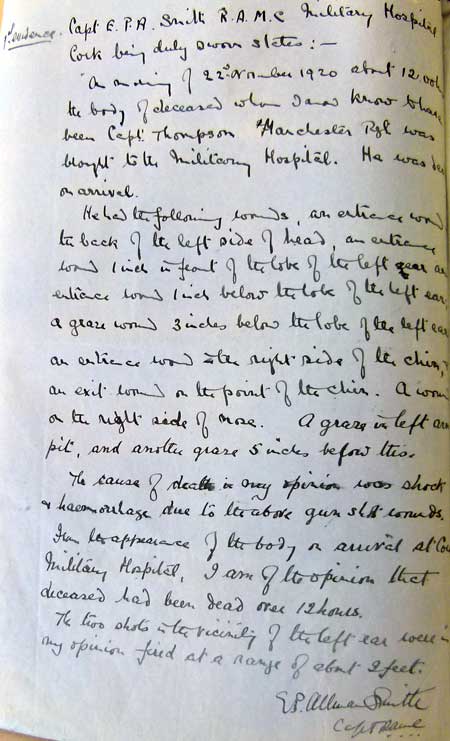 1st evidence.
Capt E.P.A. Smith R.A.M.C Military Hospital
Cork being duly sworn states:—
On morning of 22nd November 1920 about 12
the body of deceased whom I now know to have
been Capt Thompson Manchester Rgt was
brought to the Military Hospital. He was
on arrival.
He had the following wounds, an entrance wound
the back of the left side of head, an entrance
wound 1 inch in front of the lobe of the left ear an
entrance wound 1 inch below the lobe of the left ear
a graze wound 3 inches below the lobe of the left ear
an entrance wound in the right side of the chin,
an exit wound on the point of the chin. A wound
on the right side of nose. A graze in left arm
pit, and another graze 5 inches below this.
The cause of death in my opinion was shock
& haemorrhage due to the above gun shot wounds.
From the appearance of the body on arrival at
Military Hospital, I am of the opinion that
deceased had been dead over 12 hours.
The two shots in the vicinity of the left ear were in
my opinion fired at a range of about 2 feet.
E.P. Allman Smith
Capt RAMC